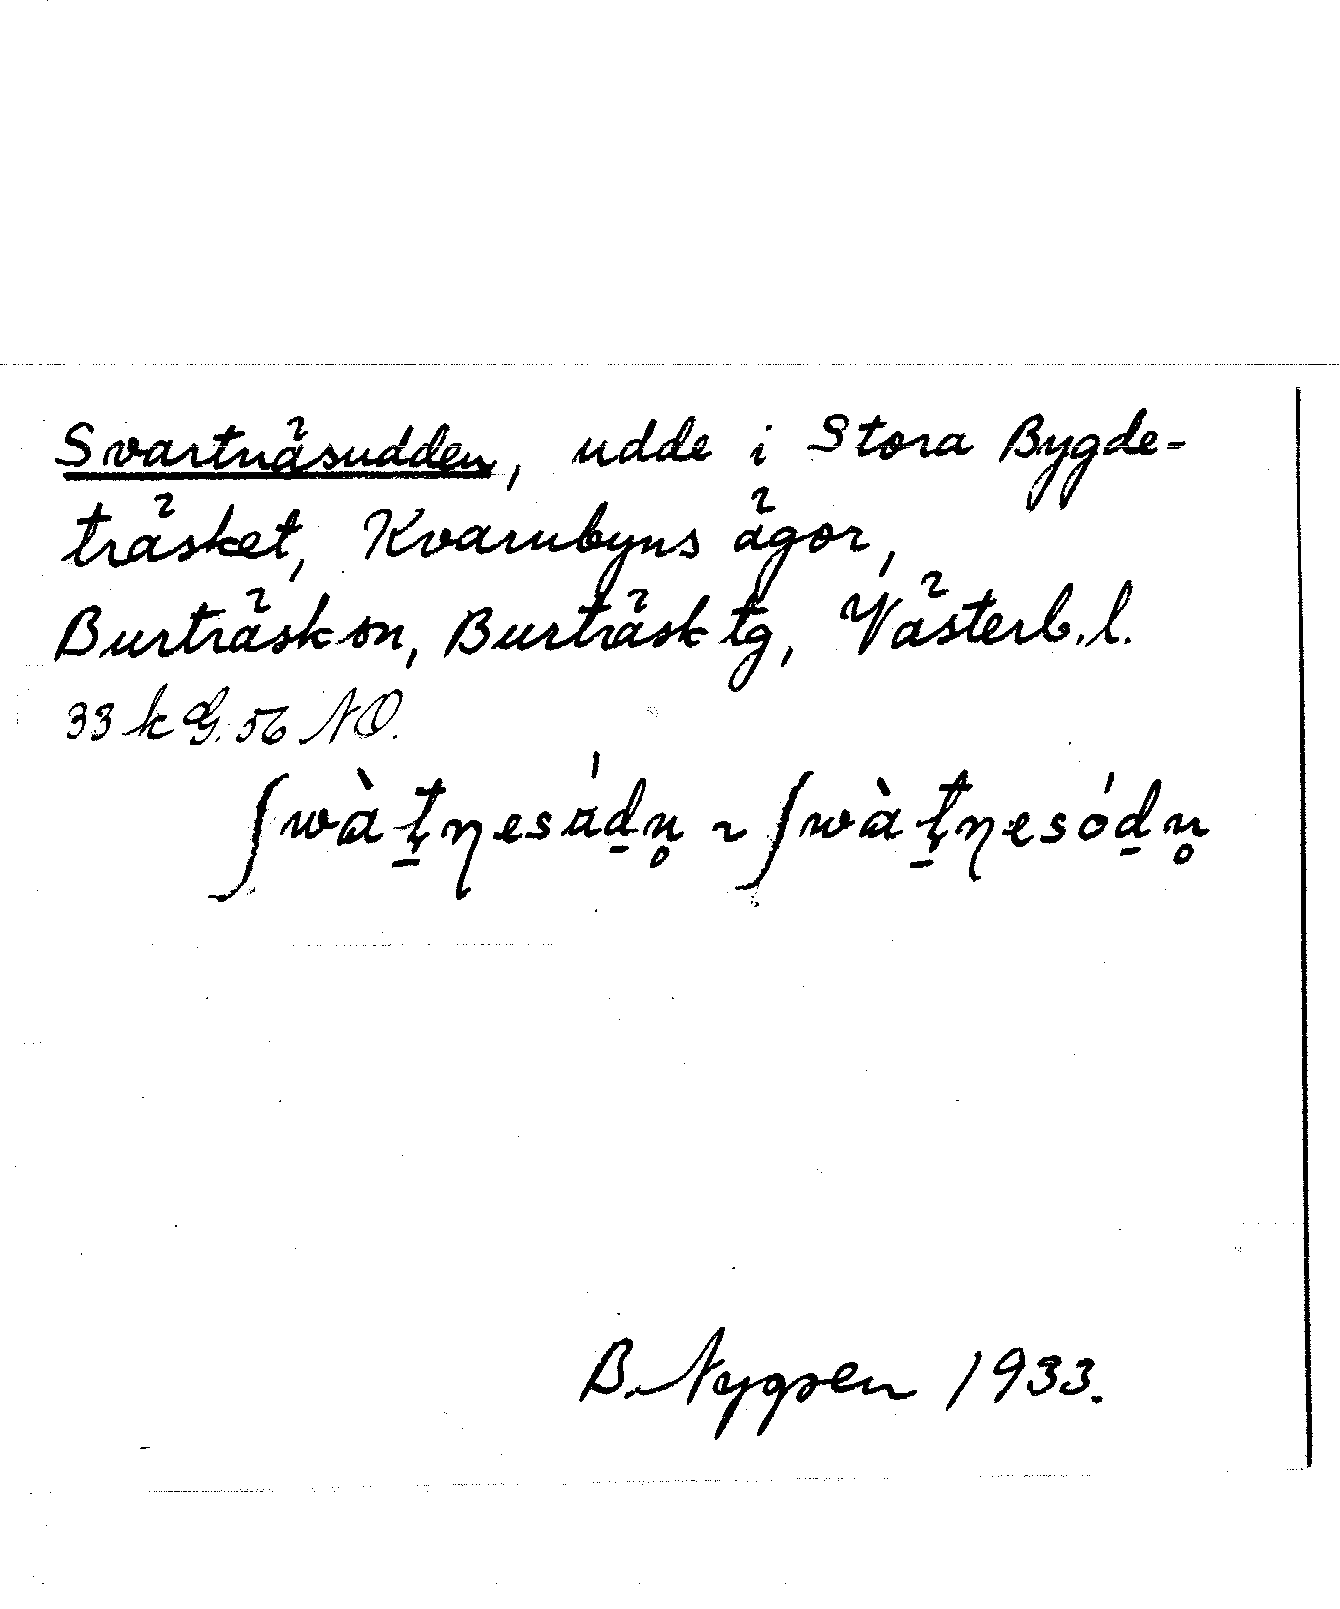 Svartnäsudden, udde i Stora Bygde-
träsket, Kvarnbyns ägor,
Burträsk sn, Burträsk tg, Västerb. l.
33 k G. 56 NO.
ʃwàt̠ηesád̠n̥ ~ ʃwàt̠ηesód̠n̥
B. 1933.